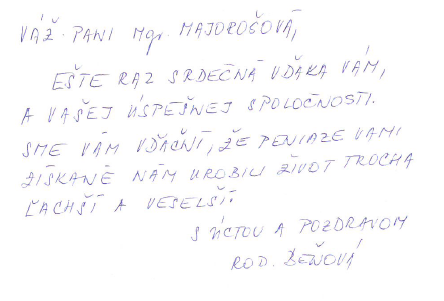 VÁŽ. PANI Mgr. MAJOROŠOVÁ,
EŠTE RAZ SRDEČNÁ VĎAKA VÁM,
A VAŠEJ ÚSPEŠNEJ SPOLOČNOSTI.
SME VÁM VĎAČNÍ, ŽE PENIAZE VAMI
ZÍSKANÉ NÁM UROBILI ŽIVOT TROCHA
ĽACHŠÍ A VESELŠÍ!
S ÚCTOU A POZDRAVOM
ROD. BEŇOVÁ